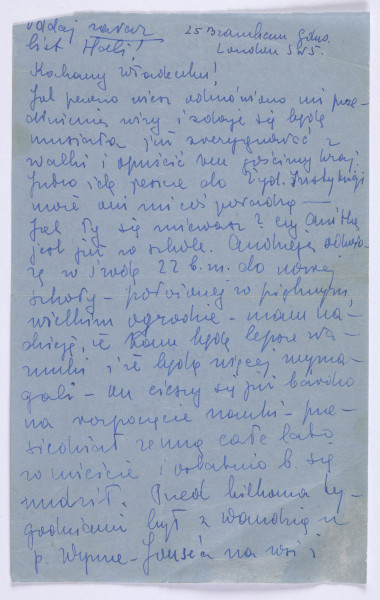 oddaj zaraz
list Hali!
25 Bramham Gdns.
London SW5.
Kochany Władeczku!
Jak pewno wiesz odmówiono mi prze-
dłużenia wizy i zdaje się będę
musiała już zrezygnować z
walki i opuścić ten gościnny kraj.
Jutro idę jeszcze do Żyd. Instytucji
może oni mi coś poradzą —
Jak Ty się miewasz? czy
jest już w szkole. Andrzeja odwo-
żę w środę 22 b.m. do nowej
szkoły – położonej w pięknym,
wielkim ogrodzie – mam na-
dzieję, że tam będą lepsze wa-
runki i że będą więcej wyma-
gali – on cieszy się już bardzo
na rozpoczęcie nauki – prze-
siedział ze mną całe lato
w mieście i ostatnio b. się
nudził. Przed kilkoma ty-
godniami był z Wandzią u
p. Wynne-Jones'a na wsi i